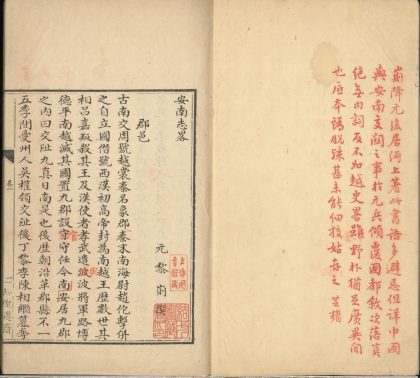 崱降元後居沔上著此書語多避忌但詳中國
與安南交關之事於元兵傾覆國都敘次落寞
絕無內詞反不如越史畧雖野朴猶足廣異聞
也原本譌脫殊甚未能細校姑存之 芸楣
安南志畧
元 黎崱 撰
郡邑
古南交周號越裳秦名象郡秦末南海尉趙佗擊併
之自立國僭號西漢初高帝封為南越王歷數世其
相呂嘉叛殺其王及漢使者孝武遣伏波將軍路博
德平南越滅其國置九郡設守守任今南安居九郡
之内曰交趾九真日南是也後歷朝沿革郡縣不一
五季間愛州人吳權領交趾後丁黎李陳相繼篡奪
卷一
一 知聖道齋